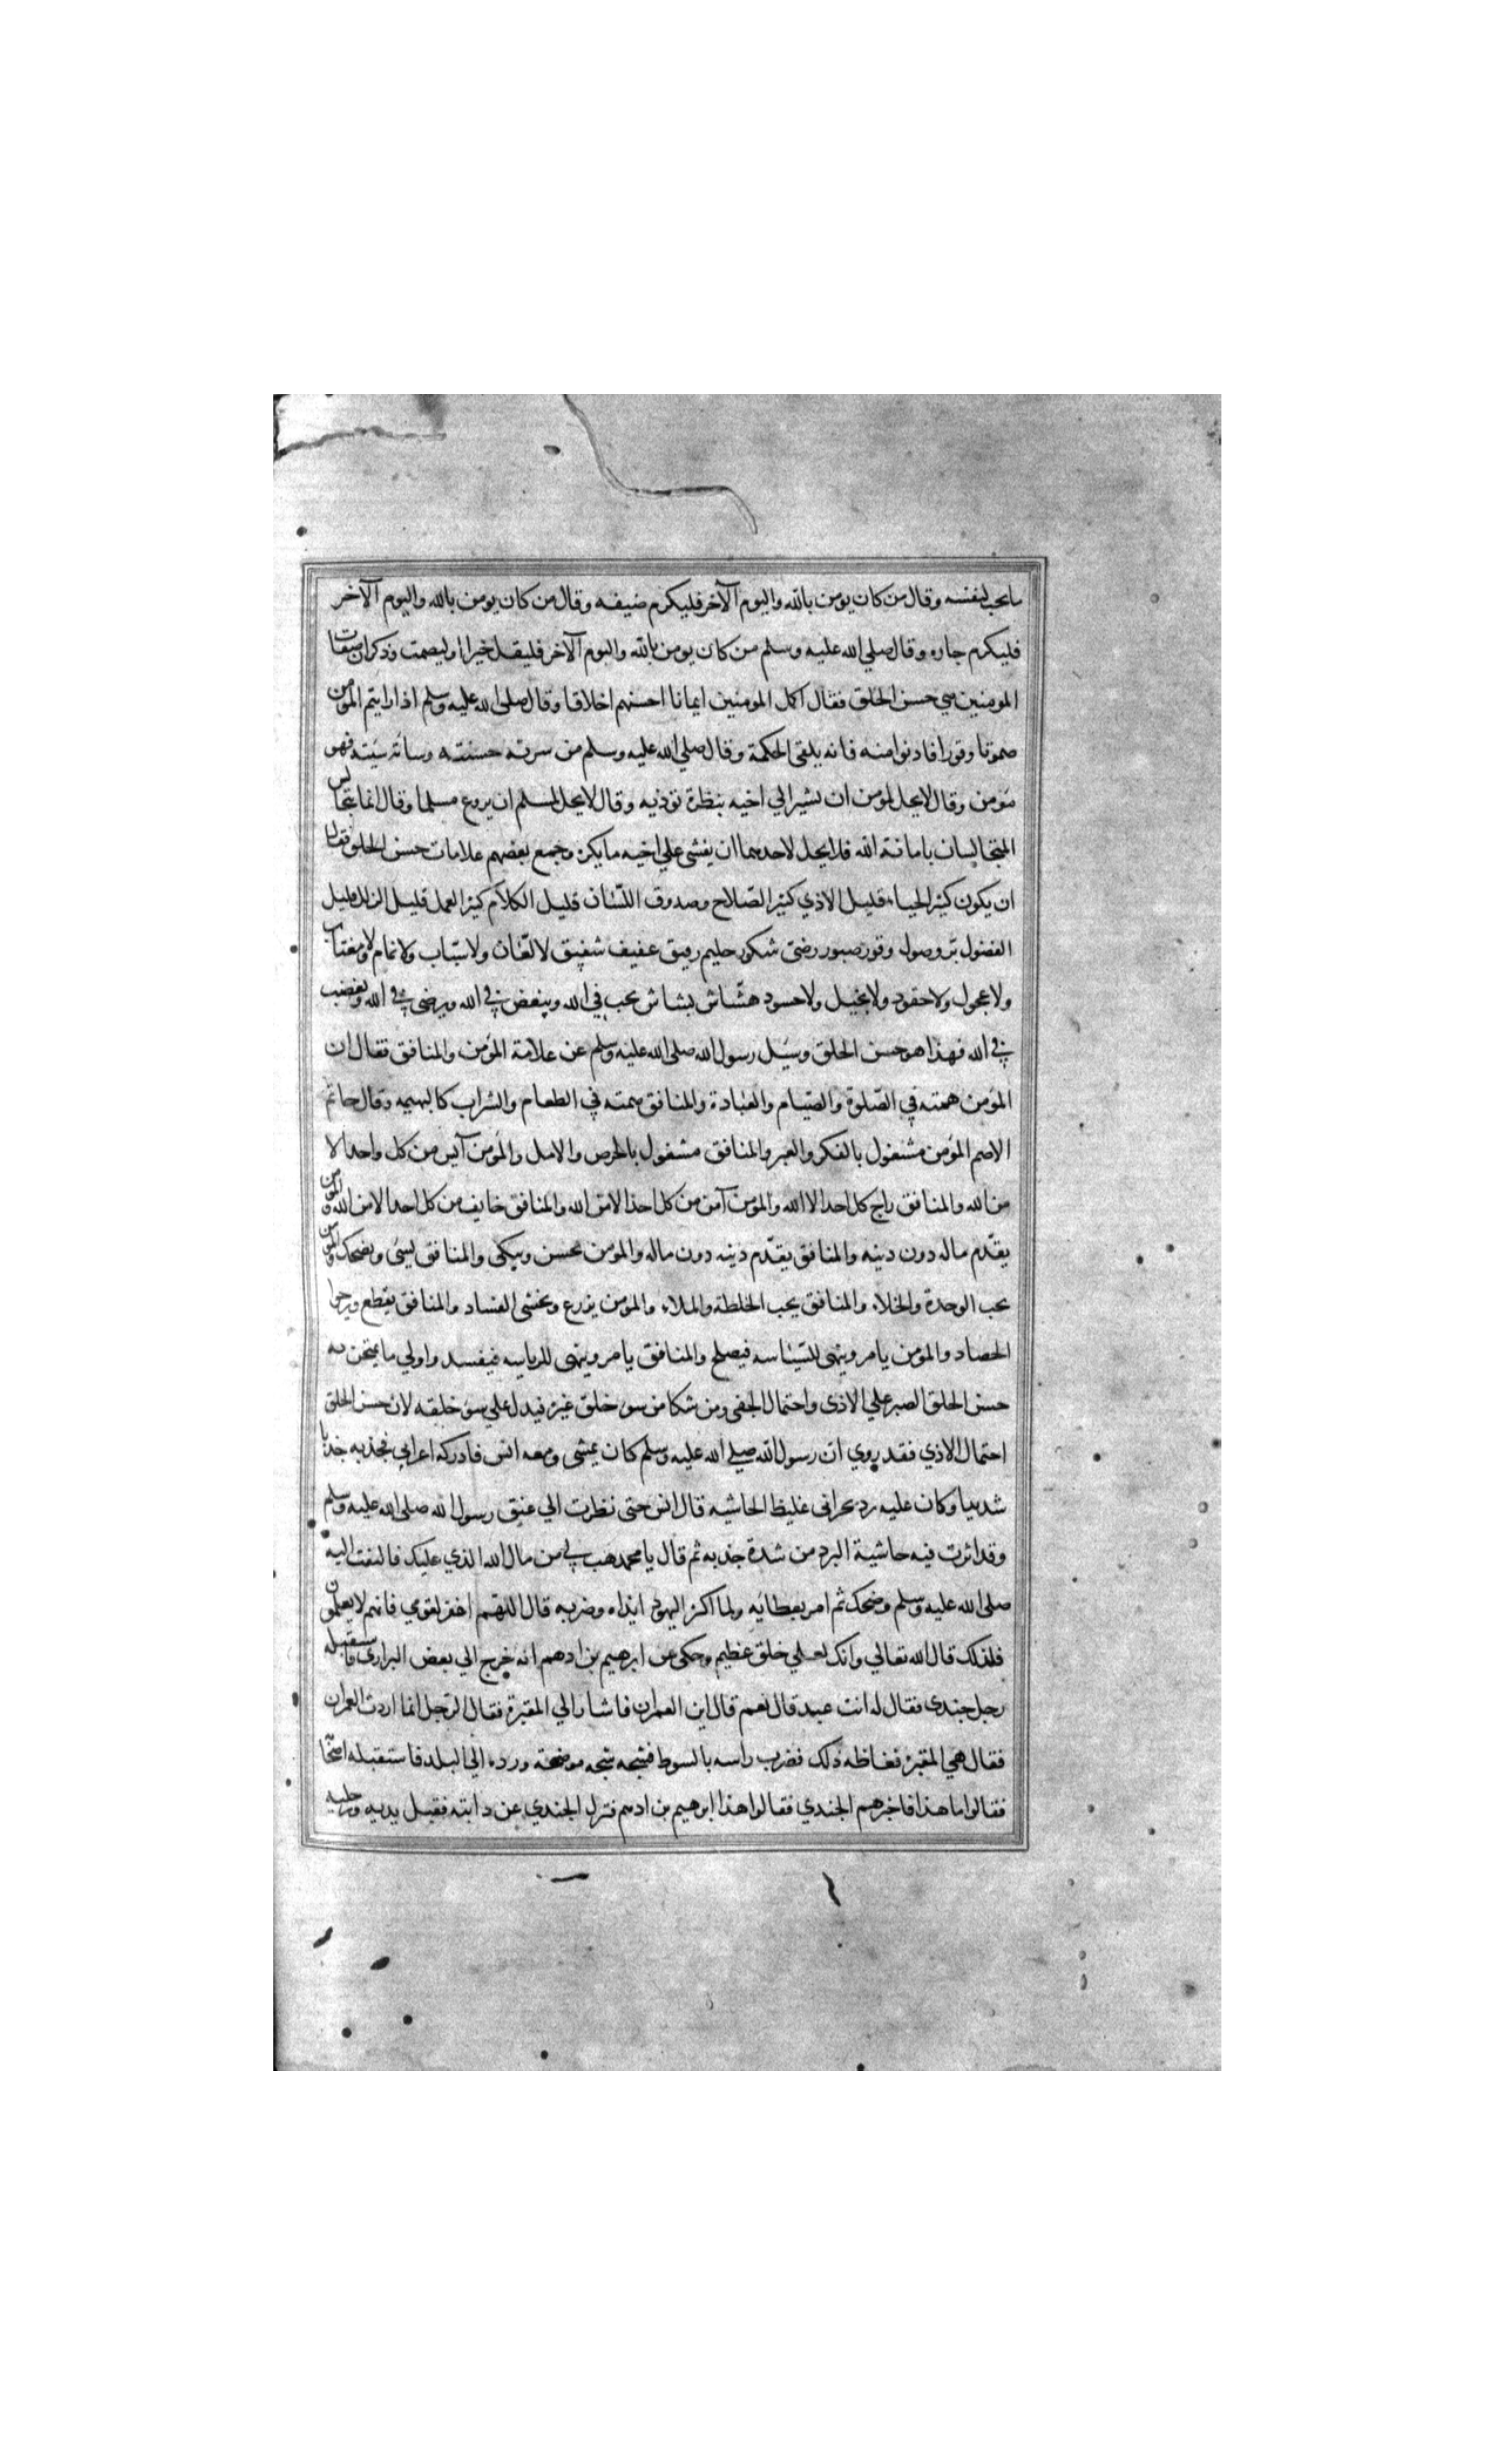 ما يحب لنفسه وقال من كان يومن بالله واليوم الآخر فليكرم ضيفه وقال من كان يومن بالله واليوم الآخر
فليكرم جاره وقال صلي الله عليه وسلم من كان يومن بالله واليوم الآخر فليقل خيرا او ليصمت وذكر ان صفات
المومنين هي حسن الخلق فقال اكمل المومنين ايمانا احسنهم اخلاقا وقال صلى الله عليه وسلم اذا رايتم المومن
صموتا وقورا فادنوا منه فانه يلقي الحكمة وقال صلي الله عليه وسلم من سرته حسنته وساته سيئته فهو
مؤمن وقال لا يحل لمومن ان يشير الي اخيه بنظرة توذيه وقال لا يحل لمسلم ان يروع مسلما وقال انما يتجالس
المتجالسان بامانة الله فلا يحل لاحدهما ان يفشي علي اخيه ما يكره وجمع بعضهم علامات حسن الخلق فقال
ان يكون كثير الحياء قليل الاذي كثير الصلاح وصدوق اللسان قليل الكلام كثير العمل قليل الزلل قليل
الفضول بر وصول وقور صبور رضى شكور حليم رفيق عفيف شفيق لا لعان ولا سباب ولا نمام ولا مغتاب
ولا عجول ولا حقود ولا بخيل ولا حسود هشاش بشاش يحب في الله ويبغض في الله ويرضى في الله ويغضب
في الله فهذا هو حسن الخلق وسيل رسول الله صلى الله عليه وسلم عن علامة المؤمن والمنافق فقال ان
المؤمن همته في الصلوة والصيام والعبادة والمنافق همته في الطعام والشراب كالبهيمه وقال حاتم
الاصم المؤمن مشغول بالفكر والعبر والمنافق مشغول بالحرص والامل والمؤمن آيس من كل واحد الا
من الله والمنافق راج كل احد الا الله والمؤمن آمن من كل احد الا من الله والمنافق خايف من كل احد الا من الله والمومن
يقدم ماله دون دينه والمنافق يقدم دينه دون ماله والمومن يحسن ويبكى والمنافق يسئ ويضحك والمومن
يحب الوحدة والخلاء والمنافق يحب الخلطة والملاء والمومن يزرع ويخشى الفساد والمنافق يقطع ويرجوا
الحصاد والمومن يامر وينهى للسياسه فيصلح والمنافق يامر وينهى للرياسه فيفسد واولي ما يمتحن به
حسن الخلق الصبر علي الاذى واحتمال الجفى ومن شكا من سو خلق غيره فيدل علي سو خلقه لان حسن الخلق
احتمال الاذي فقد روي ان رسول الله صلي الله عليه وسلم كان يمشى ومعه انس فادركه اعرابي فجذبه جذبا
شديدا وكان عليه برد نجرانى غليظ الحاشيه قال انس حتى نظرت الي عنق رسول الله صلى الله عليه وسلم
وقد اثرت فيه حاشية البرد من شدة جذبه ثم قال يا محمد هب لي من مال الله الذي عليك فالتفت اليه
صلى الله عليه وسلم وضحك ثم امر بعطائيه ولما اكثر اليهود ايذاه وضربه قال اللهم اغفر لقومي فانهم لا يعلمون
فلذلك قال الله تعالي وانك لعلي خلق عظيم وحكى عن ابرهيم بن ادهم انه خرج الي بعض البرارى فاستقبله
رجل جندى فقال له انت عبد قال نعم قال اين العمران فاشار الي المقبرة فقال الرجل انما اردت العمران
فقال هي المقبرة فغاظه ذلك فضرب راسه بالسوط فشجه شجه موضحة ورده الي البلد فاستقبله اصحا
فقالوا ما هذا فاخبرهم الجندي فقالوا هذا ابرهيم بن ادهم فنزل الجندي عن دابته فقبل يديه ورجليه